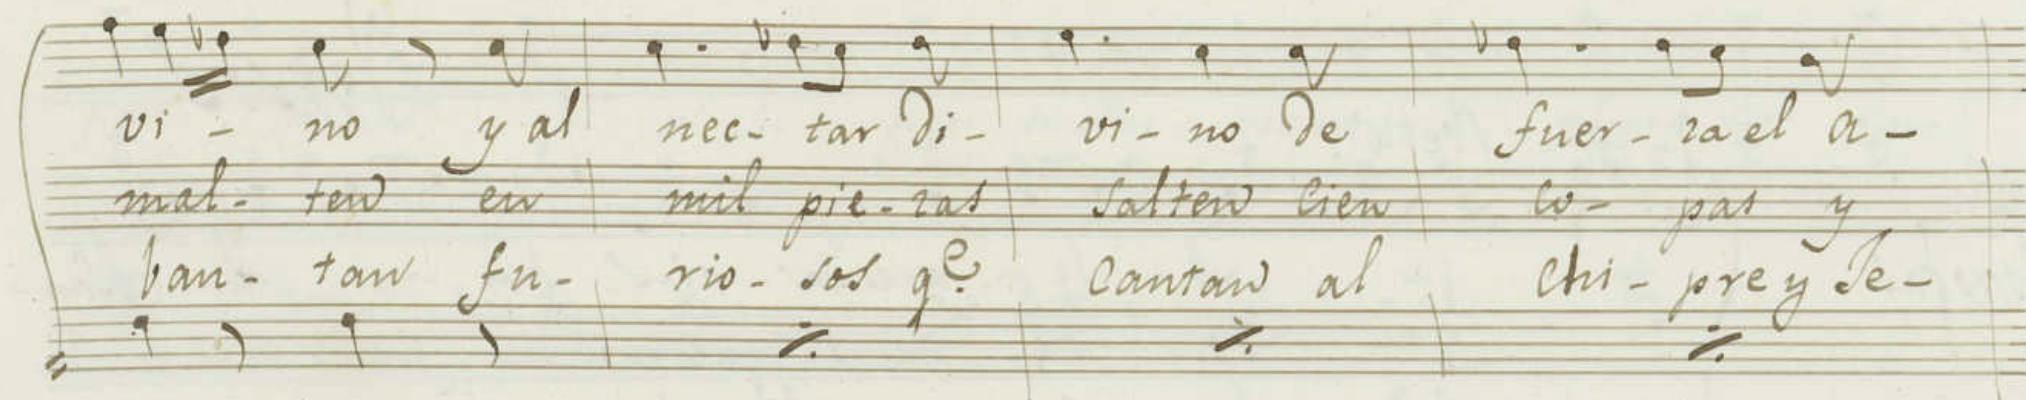 vi - no y al nec- tar di- vi- no de fuer- za el a-
mal- ten en mil pie- zas salten cien co- pas y
ban- tan fu- rio- sos q.e cantan al Chi- pre y Je-